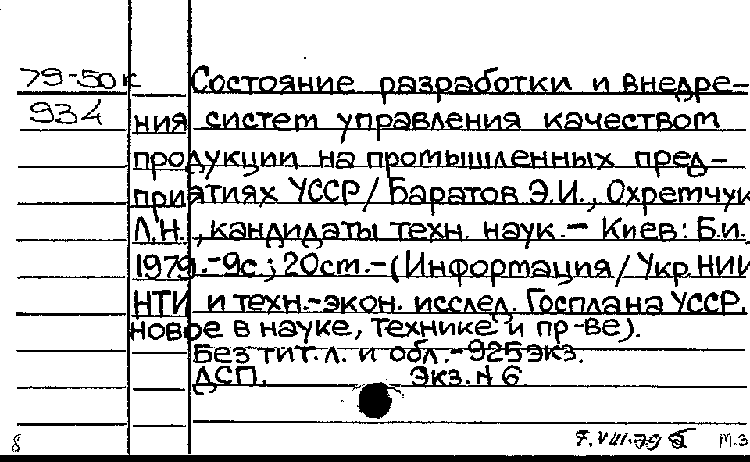 79-50к Состояние разработки и внедре-
934 ния систем управления качеством
продукции на промышленных пред-
приятиях УССР/Баратов Э.И., Охретчук
Л.Н., кандидаты техн. наук.- Киев: Б.и.
1979.-9с.; 20ст.-(Информация/Укр.НИИ
НТИ и техн.-экон. исслед. Госплана УССР.
новое в науке, технике и пр-ве).
Без тит.л. и обл.-925экз.
ДСП. Экз.N 6
8 7.VIII.79 М.З